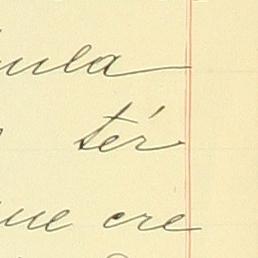 ula
tér
ue cre